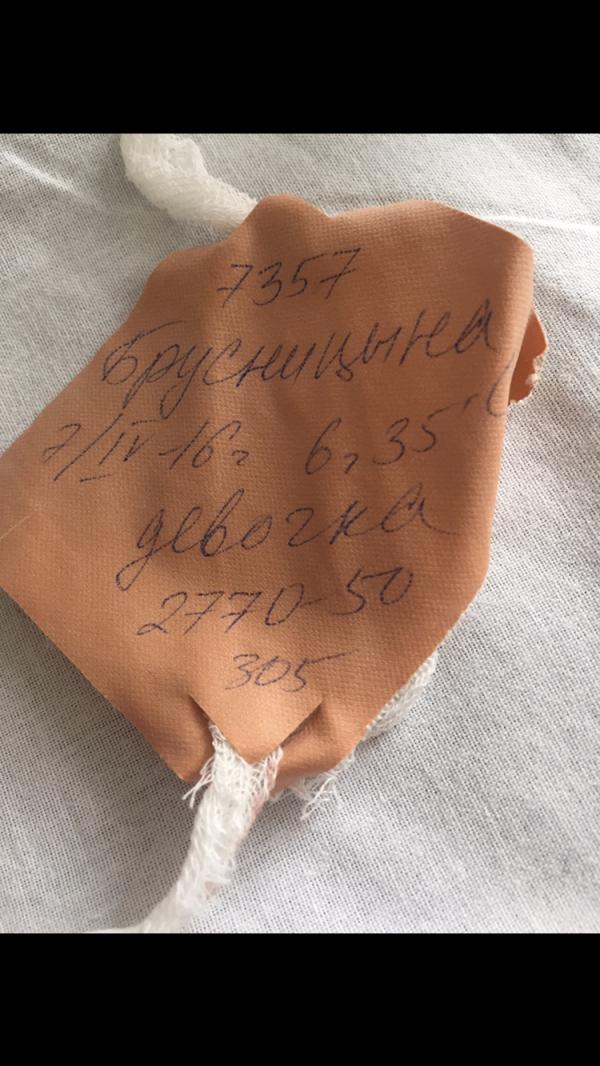 7357
Брусницына
7/IV-16г 6ч 35'
девочка
2770-50
305